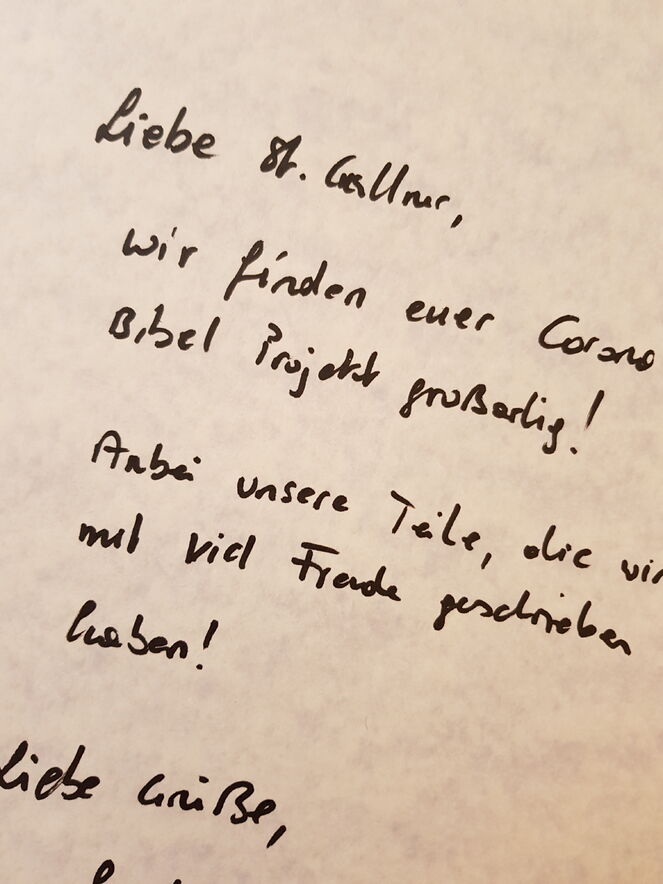 Liebe St. Galler,
wir finden euer Corona
Bibel Projekt großartig!
Anbei unsere Teile, die wir
mit viel Freude geschrieben
haben!
Liebe Grüße,